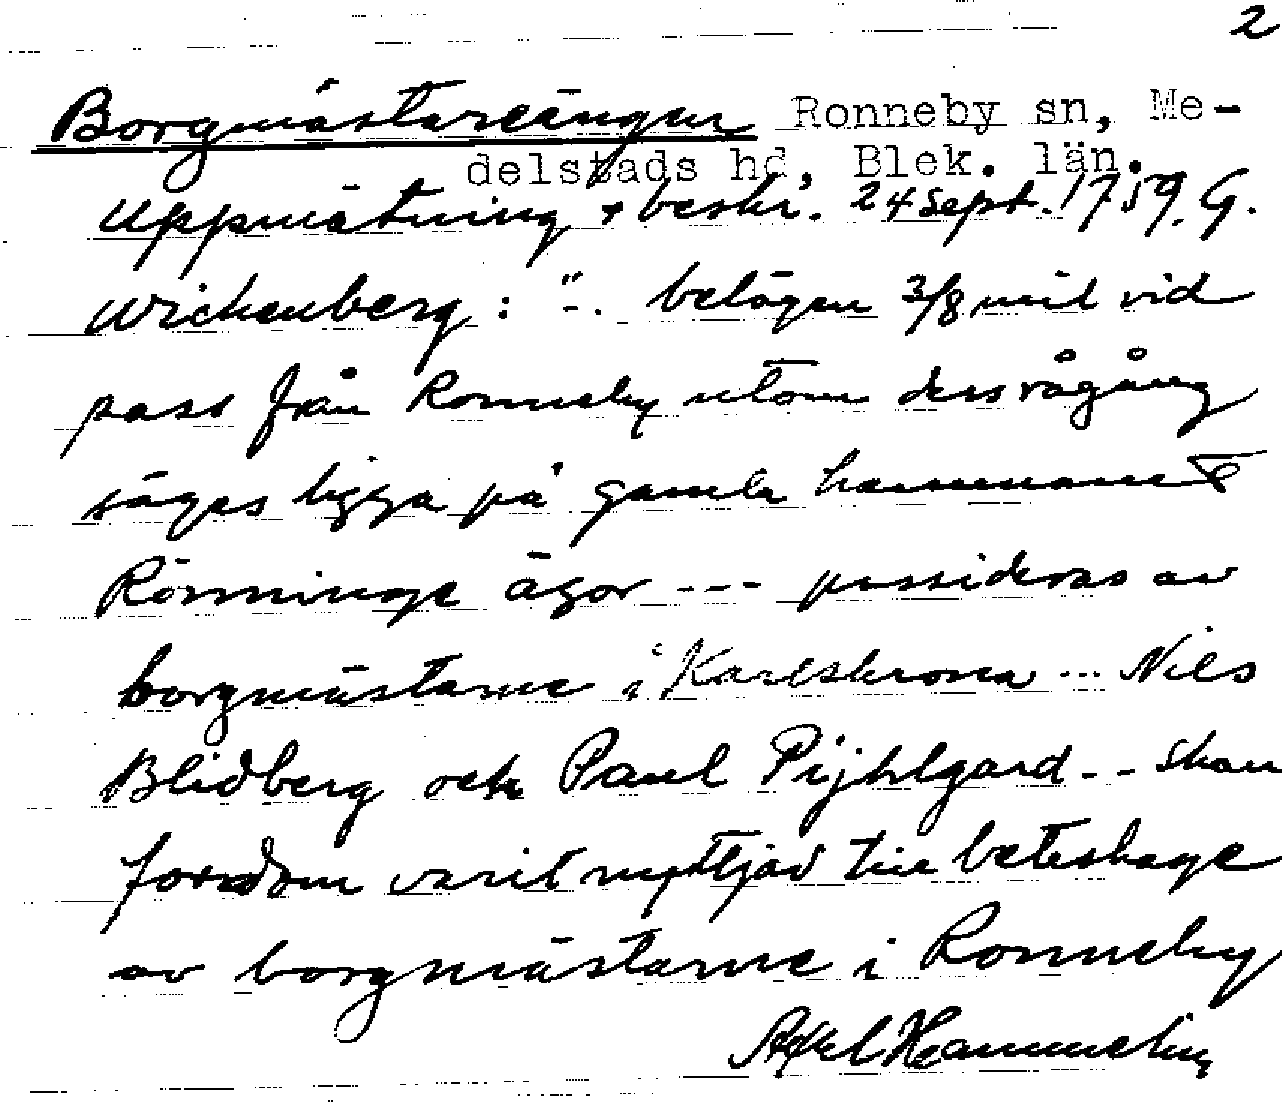 2
Borgmästareängen Ronneby sn, Me-
delstads hd, Blek. län.
Uppmätning + beskr. 24 sept. 1759. G.
Wickenberg: "-. belägen 3/8 mil vid
pass från Ronneby utom dess rågång
säges ligga på gamla hemmanet
Rönninge ägor --- possideras av
borgmästarne i Karlskrona ... Nils
Blidberg och Paul Pijhlgard -- skau
fordom varit nyttjad till beteshage
av borgmästarne i Ronneby
Axel Hammeling